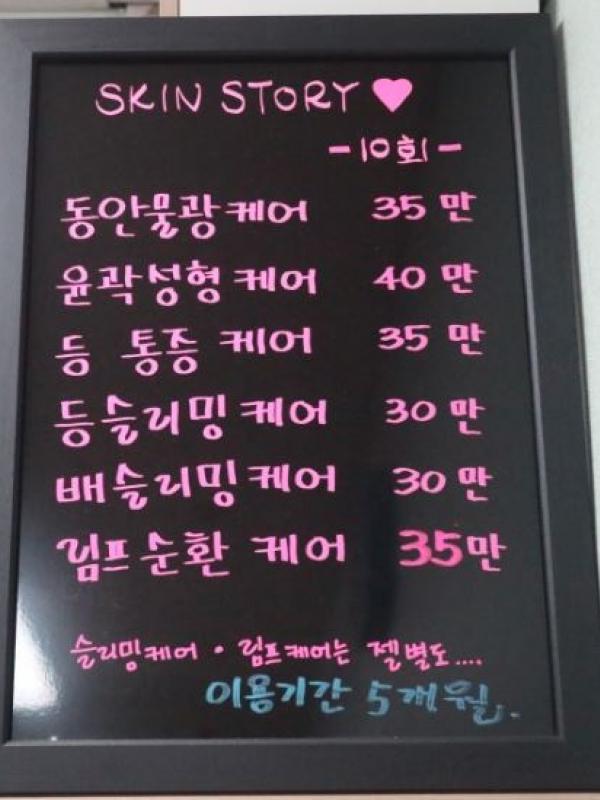 SKIN STORY ♥
-10회-
동안물광케어 35만
윤곽성형케어 40만
등 통증 케어 35만
등슬리밍케어 30만
배슬리밍케어 30만
림프순환 케어 35만
슬리밍케어 · 림프케어는 젤별도....
이용기간 5개월.